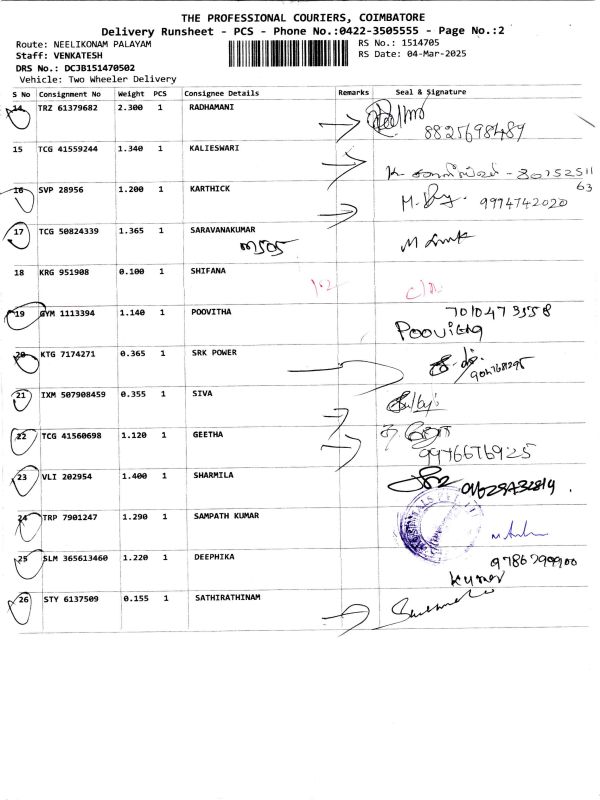 THE PROFESSIONAL COURIERS, COIMBATORE
Delivery Runsheet - PCS - Phone No.:0422-3505555 - Page No.:2
Route: NEELIKONAM PALAYAM
RS No.: 1514705
Staff: VENKATESH
RS Date: 04-Mar-2025
DRS No.: DCJB151470502
Vehicle: Two Wheeler Delivery
S No Consignment No Weight PCS Consignee Details Remarks Seal & Signature
14 TRZ 61379682 2.300 1 RADHAMANI
8825698489
15 TCG 41559244 1.340 1 KALIESWARI
16 SVP 28956 1.200 1 KARTHICK
9974742020
17 TCG 50824339 1.365 1 SARAVANAKUMAR
18 KRG 951908 0.100 1 SHIFANA
19 GYM 1113394 1.140 1 POOVITHA 7010473558
20 KTG 7174271 0.365 1 SRK POWER
21 IXM 507908459 0.355 1 SIVA
22 TCG 41560698 1.120 1 GEETHA
9976676925
23 VLI 202954 1.400 1 SHARMILA
24 TRP 7901247 1.290 1 SAMPATH KUMAR
25 SLM 365613460 1.220 1 DEEPHIKA 9786799900
Kumar
26 STY 6137509 0.155 1 SATHIRATHINAM